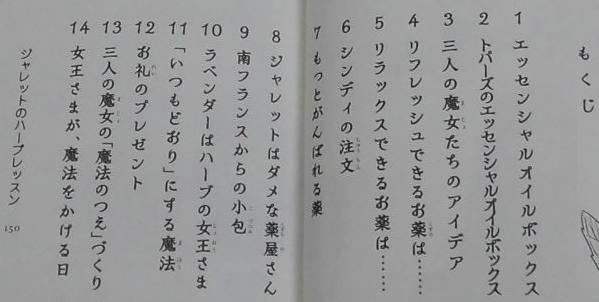 もくじ
1 エッセンシャルオイルボックス
2 トパーズのエッセンシャルオイルボックス
3 三人の魔女たちのアイデア
4 リフレッシュできるお薬は……
5 リラックスできるお薬は……
6 シンディの注文
7 もっとがんばれる薬
8 ジャレットはダメな薬屋さん
9 南フランスからの小包
10 ラベンダーはハーブの女王さま
11 「いつもどおり」にする魔法
12 お礼のプレゼント
13 三人の魔女の「魔法のつえ」づくり
14 女王さまが、魔法をかける日
ジャレットのハーブレッスン 150